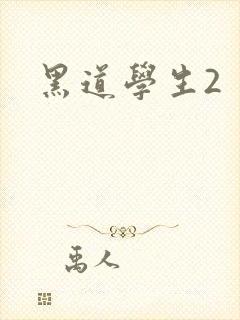 黑道學生2
禹人